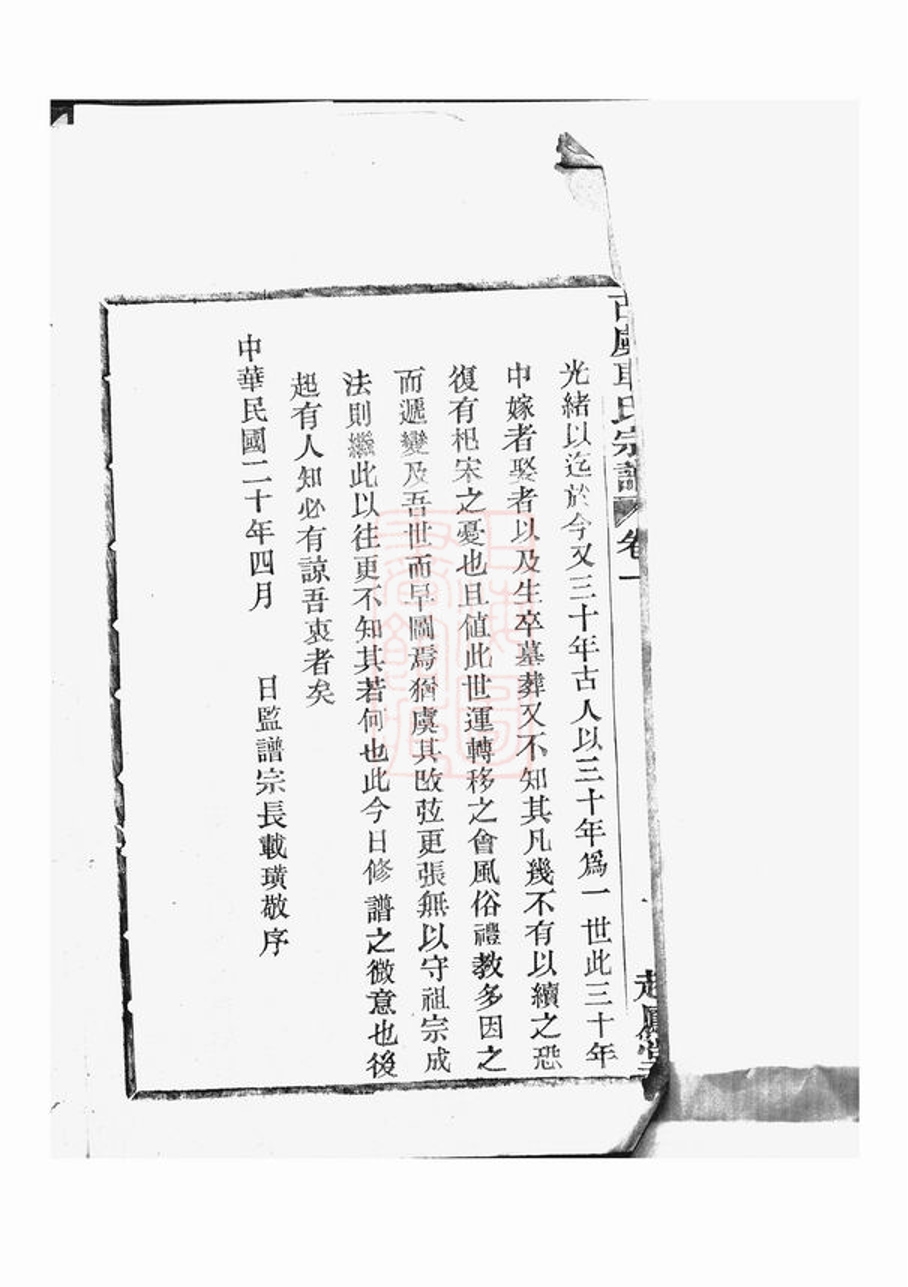 光緒以迄於今又三十年古人以三十年爲一世此三十年
中嫁者娶者以及生卒墓葬又不知其凡幾不有以續之恐
復有杞宋之憂也且値此世運轉移之會風俗禮教多因之
而遞變及吾世而早圖焉猶虞其改弦更張無以守祖宗成
法則繼此以往更不知其若何也此今日修譜之微意也後
起有人知必有諒吾衷者矣
中華民國二十年四月 日監譜宗長載璜敬序
氏宗譜 卷一